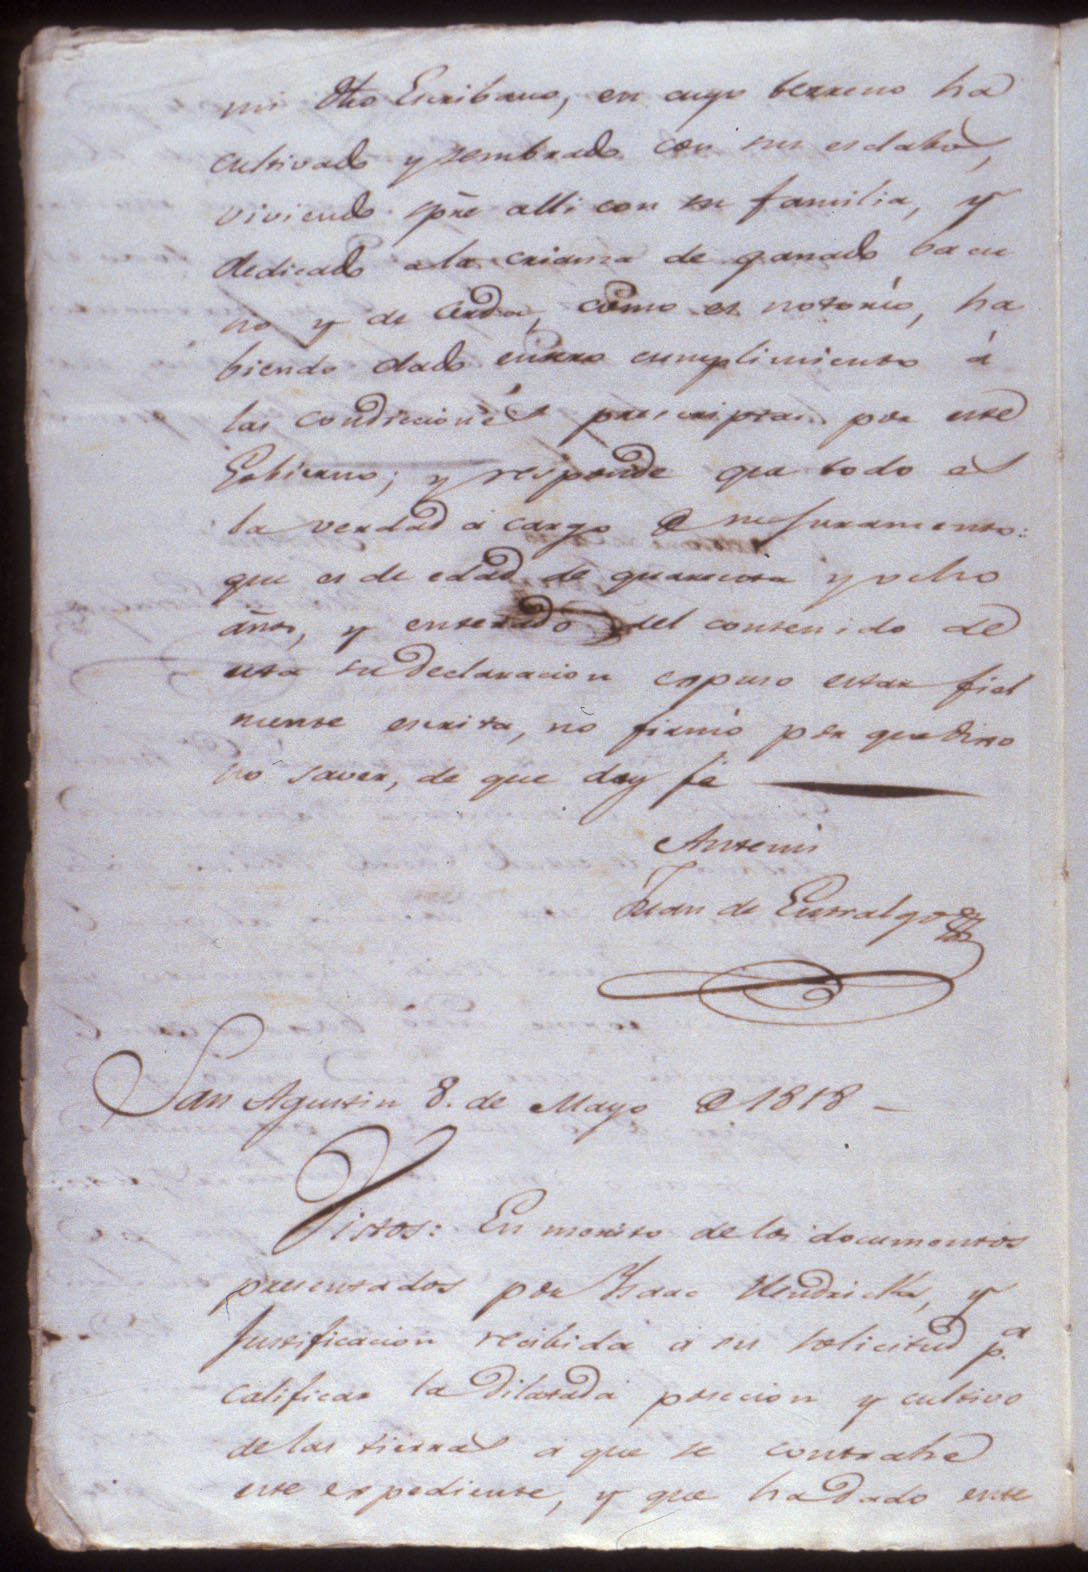 mi dho Escribano, en cuyo terreno ha
cultivado y sembrado con sus esclabos,
viviendo spre alli con su familia, y
dedicado a la crianza de ganado bacu
no y de cerda, como es notorio, ha
biendo dado entero cumplimiento á
las condicciones prescriptas por este
Gobierno; y responde que todo es
la verdad a cargo de su Juramento:
que es de edad de quarenta y ocho
años, y enterado del contenido de
esta su declaracion expuso estar fiel
mente escrita, no firmó por que dixo
no saver, de que doy fé
Antemi
Juan de Entralgo
San Agustin 8. de Mayo de 1818
Vistos: En merito de los documentos
presentados por Ysaac Hendricks, y
Justificacion recibida a su solicitud pa
calificar la dilatada posecion y cultivo
de las tierras a que se contrahe
este expediente, y que ha dado este